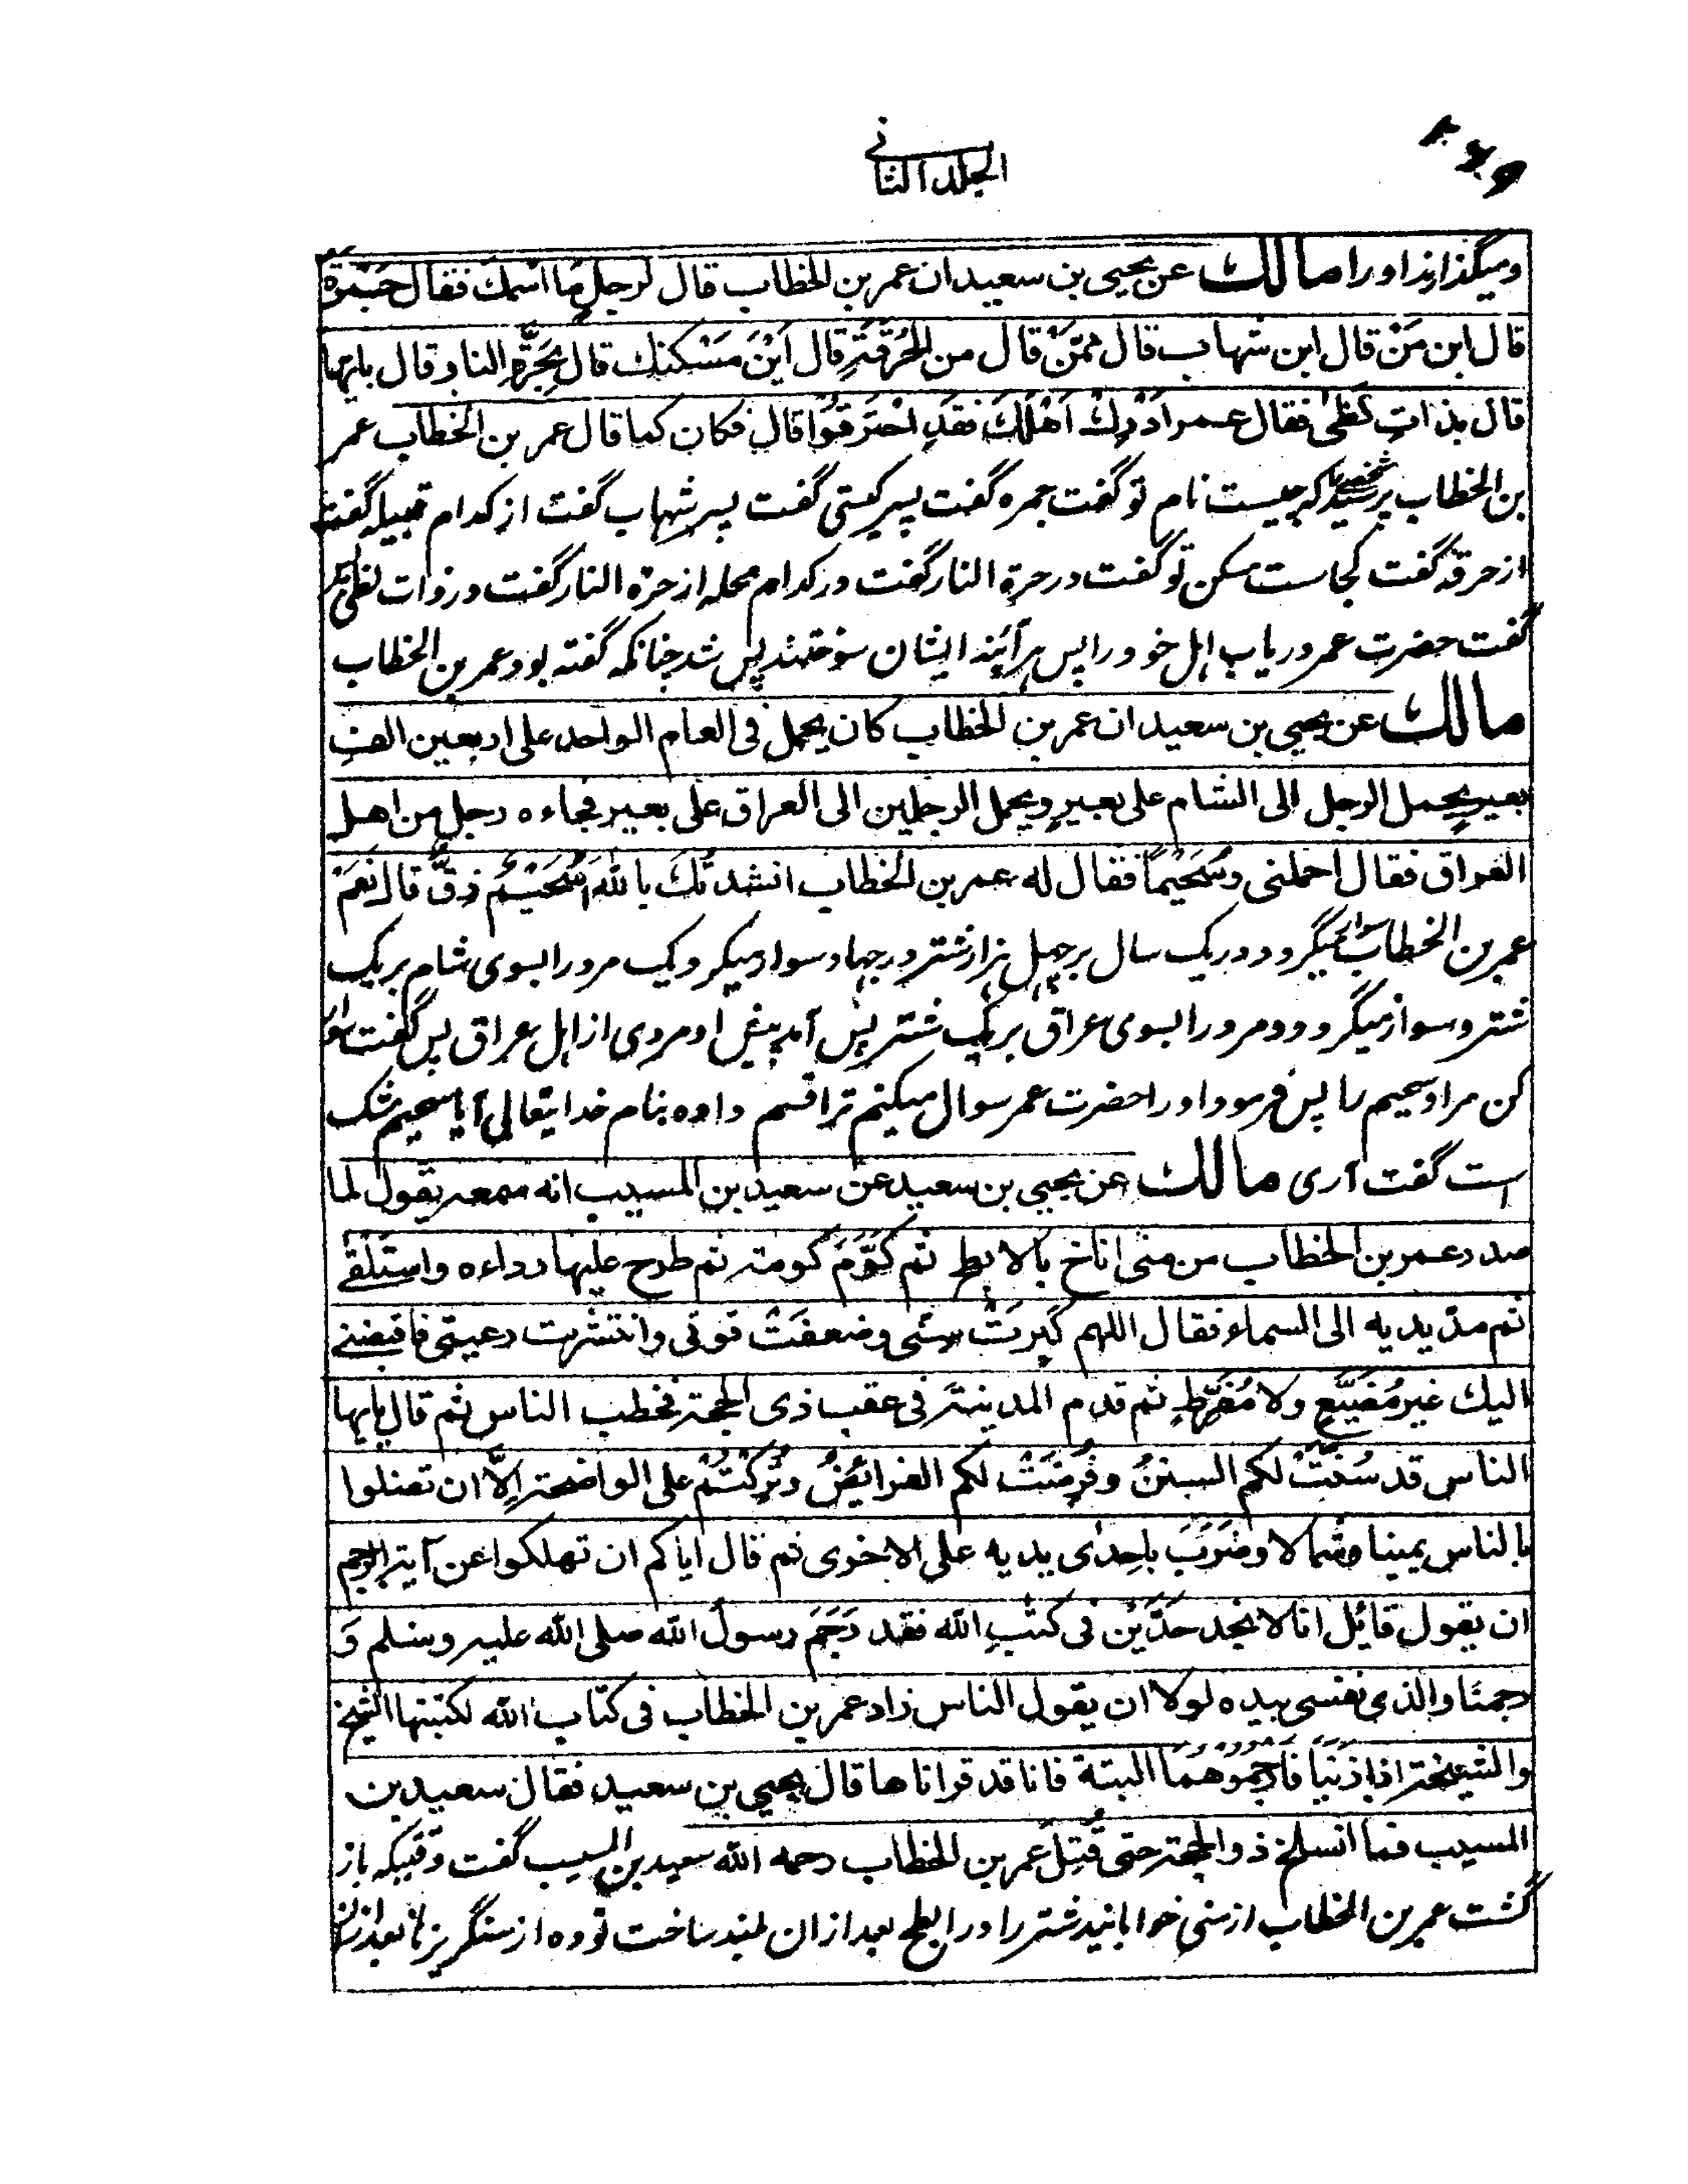 الجلد الثانی
ومیگذارند اورا مالك عن يحيى بن سعيد ان عمر بن الخطاب قال لرجلٍ مَا اسْمُكَ فقال جَمْرَة
قال ابن مَنْ قال ابن شهاب قال ممّنْ قال من الحُرَقَةِ قال اَيْنَ مَسْكنك قال بِحَرَّةِ النار قال بايّها
قال بذاتِ لَظٰى فقال عمر اَدْرِكْ اَهْلَكَ فقَدِ احْتَرَقُوْا قال فكان كما قال عمر بن الخطاب عمر
بن الخطاب پرسید شخصی را که چیست نام تو گفت جمره گفت پسر کیستی گفت پسر شهاب گفت از کدام قبیله گفت
از حرقه گفت کجاست مسکن تو گفت در حرة النار گفت در کدام محله از حرة النار گفت در ذات لظی
گفت حضرت عمر دریاب اہل خود را پس ہر آئینہ ایشان سوختند پس شد چنانکه گفته بود عمر بن الخطاب
مالك عن يحيى بن سعيد ان عمر بن الخطاب كان يحمل فى العام الواحد على اربعين الف
بعيرٍ يحمل الرجل الى الشام على بعيرٍ ويحمل الرجلين الى العراق على بعير فجاءه رجل من اهل
العراق فقال احملنى وسُحَيْمًا فقال له عمر بن الخطاب انشدتُك بالله اَسُحَيْمٌ زِقٌّ قال نَعَمْ
عمر بن الخطاب سوار میکرد در یک سال بر چہل ہزار شتر در جہاد سوار میکرد یک مرد را بسوی شام بر یک
شتر و سوار میکرد دو مرد را بسوی عراق بر یک شتر پس آمد پیش او مردی از اہل عراق پس گفت سوار
کن مرا و سحیم را پس فرمود او را حضرت عمر سوال میکنم ترا قسم داده بنام خدایتعالی آیا سحیم مشک
است گفت آری مالك عن يحيى بن سعيد عن سعيد بن المسيب انه سمعه يقول لما
صدر عمر بن الخطاب من منى اناخ بالابطح ثم كَوَّمَ كومة ثم طرح عليها رداءه واستَلْقٰے
ثم مدّ يديه الى السماء فقال اللهم كَبِرَتْ سنّى وضعفَتْ قوتى وانتشرت رعيتى فاقبضنے
اليك غيرَ مُضَيِّعٍ ولا مُفَرِّطٍ ثم قدم المدينة فى عقب ذى الحجة فخطب الناس ثم قال يايها
الناس قد سُنَّتْ لكم السننُ وفُرِضَتْ لكم الفرائِضُ وتُرِكْتُمْ على الواضحة اِلَّا ان تضلوا
بالناس يمينا وشمالا وضَرَبَ باحِدٰى يديه على الاخرى ثم قال اياكم ان تهلكوا عن آية الرجم
ان يقول قائل انا لا نجد حَدَّيْن فى كتٰبِ الله فقد رَجَمَ رسولُ الله صلى الله عليه وسلم وَ
رجمنَا والذى نفسى بيده لولا ان يقول الناس زاد عمر بن الخطاب فى كتاب الله لكتبتها الشيخ
والشيخة اذا زَنَيَا فَارجُمُوْهُمَا البتة فانا قد قراناها قال يحيى بن سعيد فقال سعيد بن
المسيب فما انسلخ ذوالحجة حتى قُتِلَ عمر بن الخطاب رحمه الله سعید بن المسیب گفت وقتیکه باز
گشت عمر بن الخطاب از منی خوابانید شتر را در ابطح بعد از ان بلند ساخت توده از سنگریزہا بعد ازان